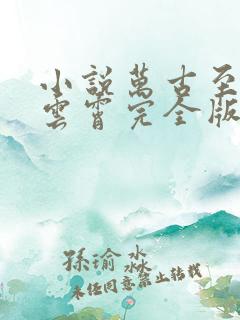 小說萬古至
雲霄完全版
孫瑜淼
未经同意禁止转载